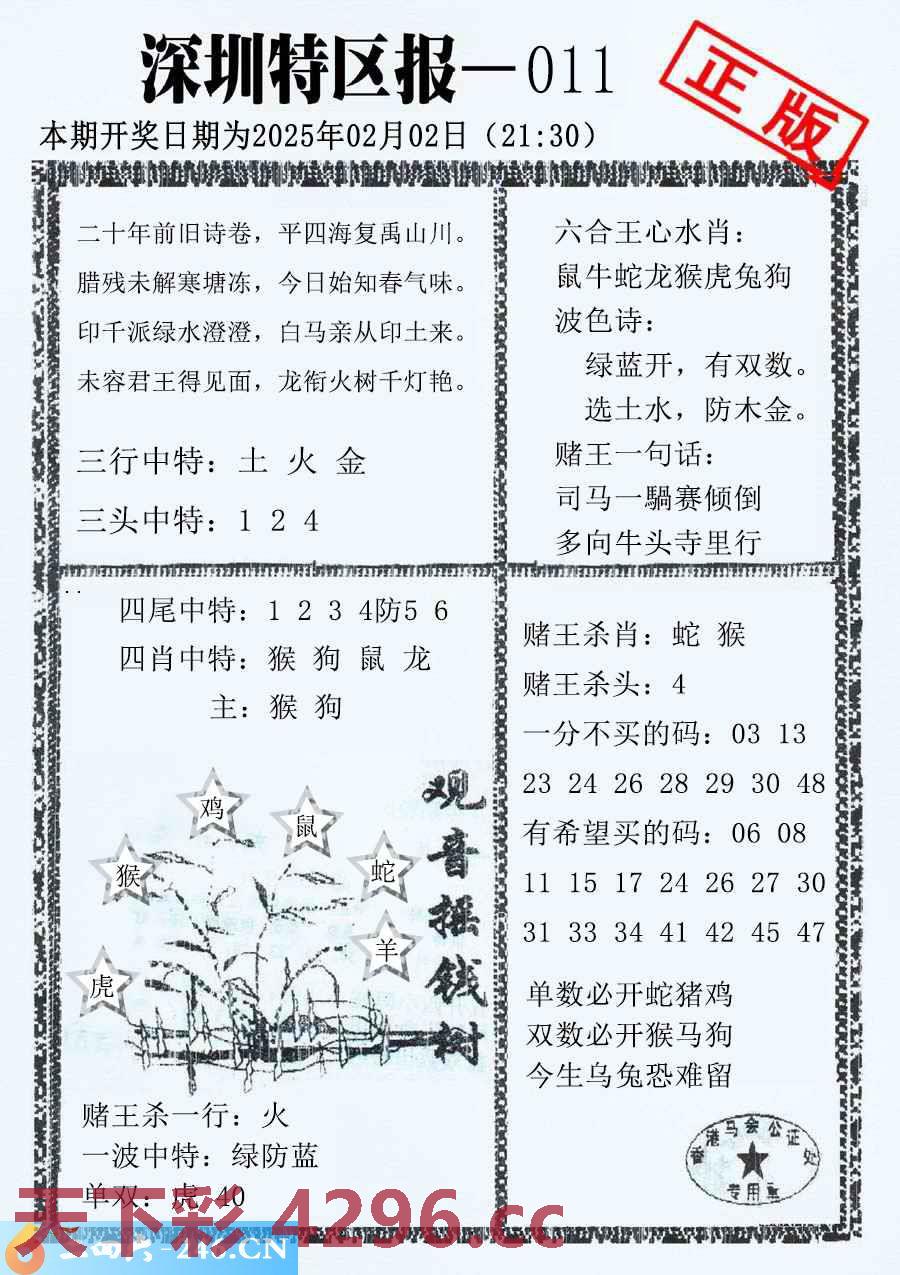 深圳特区报—011
正版
本期开奖日期为2025年02月02日（21:30）
二十年前旧诗卷，平四海复禹山川。
腊残未解寒塘冻，今日始知春气味。
印千派绿水澄澄，白马亲从印土来。
未容君王得见面，龙衔火树千灯艳。
三行中特：土 火 金
三头中特：1 2 4
六合王心水肖：
鼠牛蛇龙猴虎兔狗
波色诗：
绿蓝开，有双数。
选土水，防木金。
赌王一句话：
司马一騧赛倾倒
多向牛头寺里行
四尾中特：1 2 3 4防5 6
四肖中特：猴 狗 鼠 龙
主：猴 狗
鸡
鼠
猴
蛇
羊
虎
观音摇钱树
赌王杀一行：火
一波中特：绿防蓝
单双：虎 40
赌王杀肖：蛇 猴
赌王杀头：4
一分不买的码：03 13
23 24 26 28 29 30 48
有希望买的码：06 08
11 15 17 24 26 27 30
31 33 34 41 42 45 47
单数必开蛇猪鸡
双数必开猴马狗
今生乌兔恐难留
香港马会公证处
专用章
天下彩 4296.cc
-246.CN